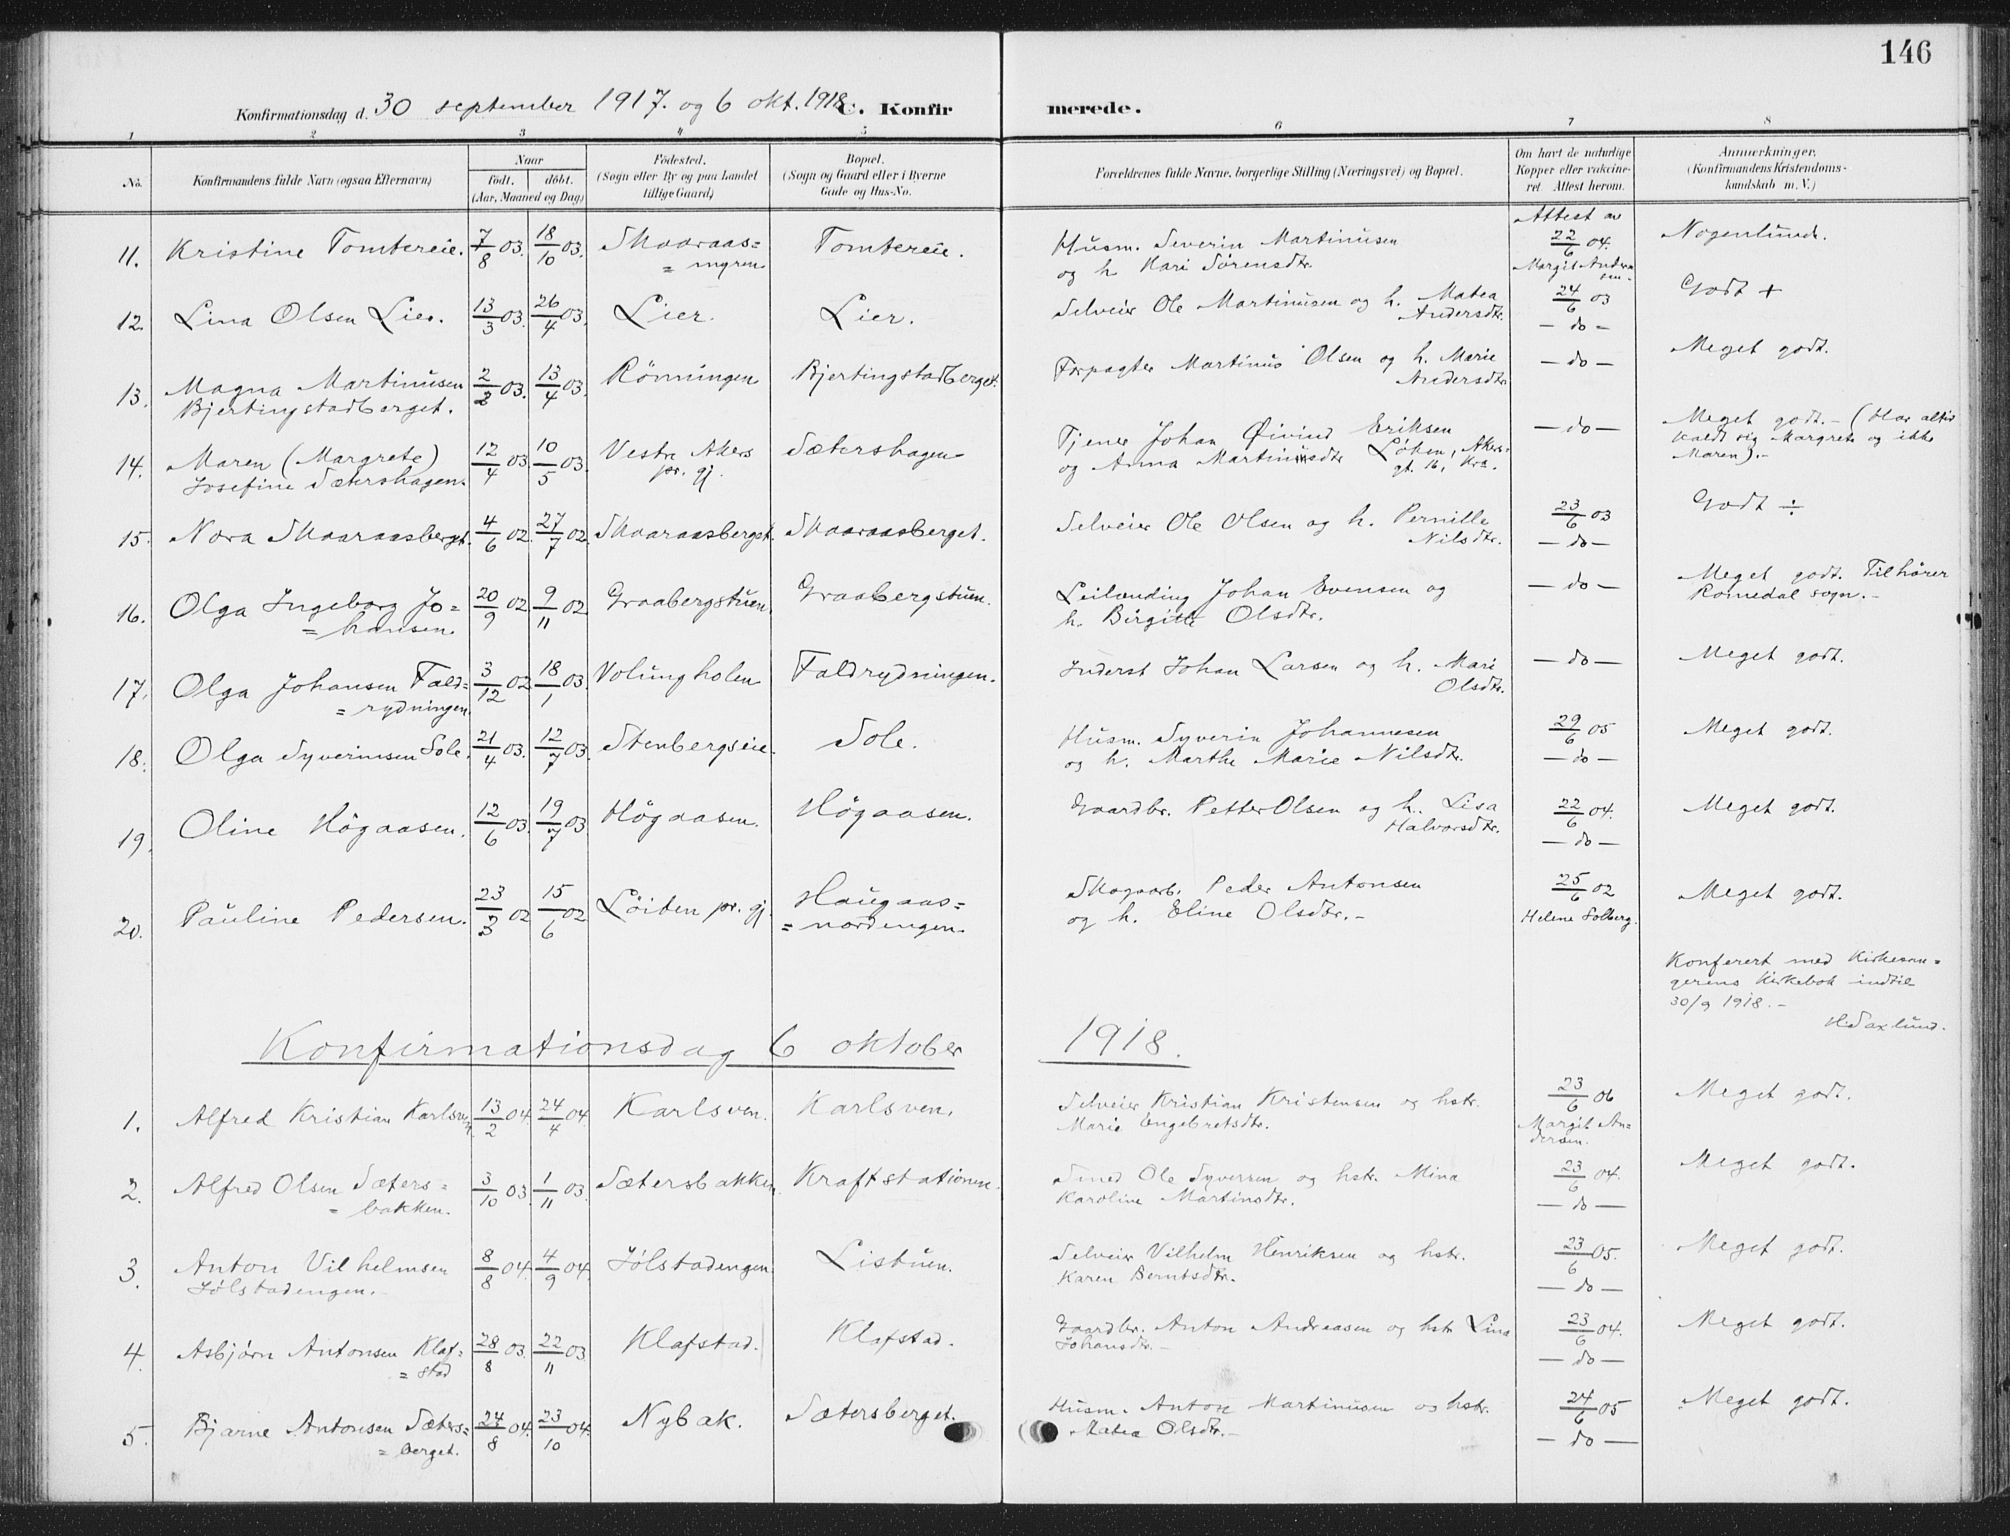 146
Konfirmationsdag d. 30 september 1917. og 6 okt. 1918 C. Konfirmerede.
1 2 3 4 5 6 7 8
No. Konfirmandens fulde Navn (ogsaa Efternavn) Naar födt. döbt. (Aar, Maaned og Dag) Födested. (Sogn eller By og paa Landet tillige Gaard) Bopæl. (Sogn og Gaard eller i Byerne Gade og Hus-No. Forældrenes fulde Navne, borgerlige Stilling (Næringsvei) og Bopæl. Om havt de naturlige Kopper eller vakcineret Attest herom. Anmærkninger. (Konfirmandens Kristendomskundskab m. V.)
11. Kristine Tomtereie. 7/8 03. 18/10 03. Skaaraas= =myren Tomtereie. Husm. Severin Martinusen og h. Kari Sørensdtr. Attest av 22/6 04. Margit Andersen. Nogenlunde.
12. Lina Olsen Lier. 13/3 03. 26/4 03. Lier. Lier. Selveier Ole Martinusen og h. Matea Andersdtr. 24/6 03 — do — Godt +
13. Magna Martinusen Bjertingstadberget. 2/2 03. 13/4 03. Rönningen Bjertingstadberget. Forpagter Martinus Olsen og h. Marie Andersdtr. — do — Meget godt.
14. Maren (Margrete) Josefine Sætershagen. 12/4 03 10/5 03. Vestre Akers pr. gj. Sætershagen Tjener Johan Øivind Eriksen og Anna Martinusdtr Løken, Akersgt. 16, Kra. — do — Meget godt. – (Har altid kaldt sig Margrete og ikke Maren). –
15. Nora Skaaraasberget. 4/6 02. 27/7 02. Skaaraasberget. Skaaraasberget. Selveier Ole Olsen og h. Pernille Nilsdtr. 23/6 03 — do — Godt ÷
16. Olga Ingeborg Jo= =hansen. 20/9 02. 9/11 02 Graabergstuen. Graabergstuen. Leilænding Johan Evensen og h. Birgitte Olsdtr. — do — Meget godt. Tilhører Romedal sogn. –
17. Olga Johansen Fald= =rydningen. 3/12 02 18/1 03. Volungholen Faldrydningen. Inderst Johan Larsen og h. Mari Olsdtr. — do — Meget godt.
18. Olga Syverinsen Sole. 21/4 03. 12/7 03. Stenbergseie Sole. Husm. Syverin Johannesen og h. Marthe Marie Nilsdtr. 29/6 05 — do — Meget godt.
19. Oline Högaasen. 12/6 03. 19/7 03. Högaasen. Högaasen. Gaardbr. Petter Olsen og h. Lisa Halvorsdtr. 22/6 04. — do — Meget godt.
20. Pauline Pedersen. 23/3 02 15/6 02 Löiten pr. gj. Haugaas= =nordengen. Skogarb. Peder Antonsen og h. Eline Olsdtr. – 25/6 02 Helene Solberg. Meget godt.
Konferert med Kirkesan=
gerens Kirkebok indtil
30/9 1918. –
H. Saxlund.
Konfirmationsdag 6 oktober 1918.
1. Alfred Kristian Karlsven. 13/2 04. 24/4 04. Karlsven. Karlsven. Selveier Kristian Kristensen og hstr. Marie Engebretsdtr. 23/6 06 Margit Andersen. Meget godt.
2. Alfred Olsen Sæters= =bakken. 3/10 03. 1/11 03. Sætersbakken. Kraftstationen. Smed Ole Syversen og hstr. Mina Karoline Martinsdtr. 23/6 04. — do — Meget godt.
3. Anton Vilhelmsen Jølstadengen. 8/8 04. 4/9 04. Jølstadengen Listuen. Selveier Vilhelm Henriksen og hstr. Karen Berntsdtr. 23/6 05. — do — Meget godt.
4. Asbjørn Antonsen Klaf= =stad 28/8 03. 22/11 03 Klafstad. Klafstad. Gaardbr. Anton Andreasen og hstr Lina Johansdtr. – 23/6 04. — do — Meget godt.
5. Bjarne Antonsen Sæters= =berget. 24/8 04. 23/10 04. Nybak. Sætersberget. Husm. Anton Martinusen og hstr. Matea Olsdtr. – 24/6 05 — do — Meget godt.